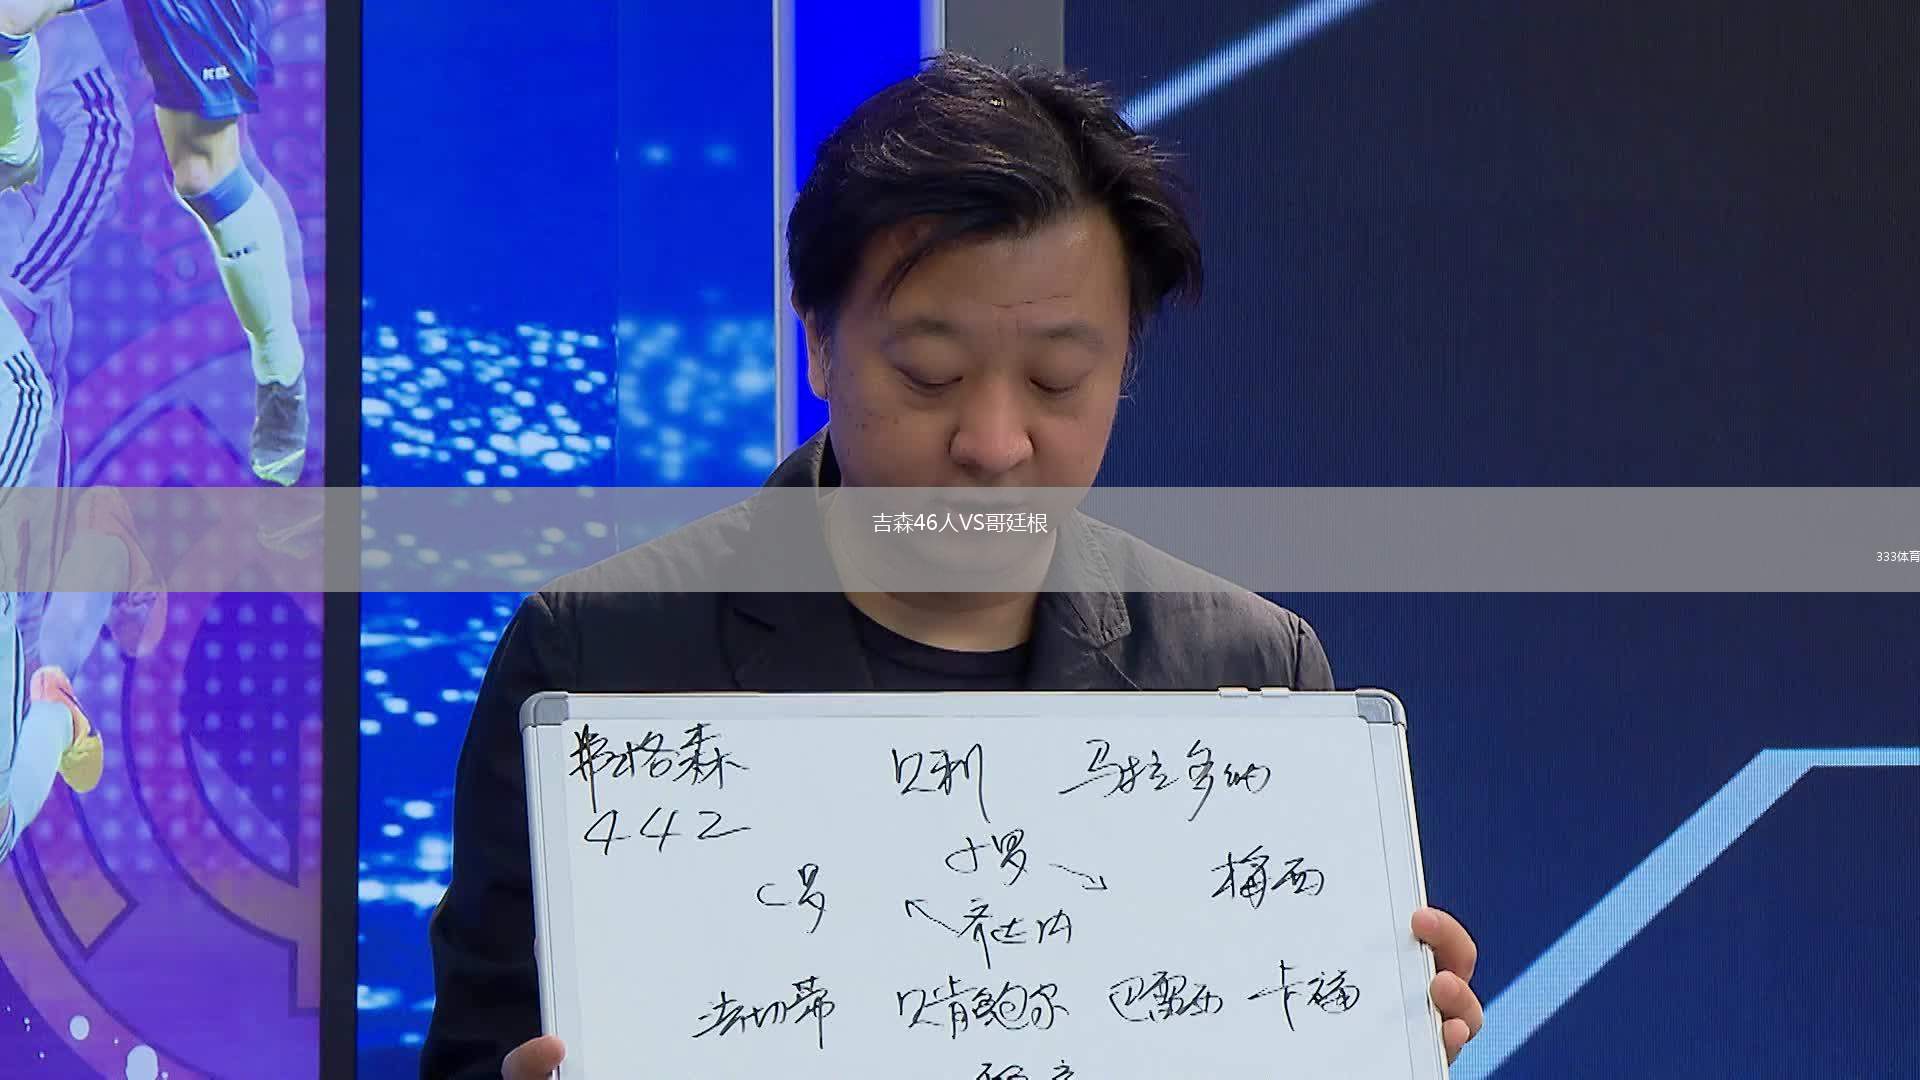 吉森46人VS哥廷根
333体育
弗格森 贝利 马拉多纳
442
小罗
C罗 梅西
齐达内
法切蒂 贝肯鲍尔 巴雷西 卡福